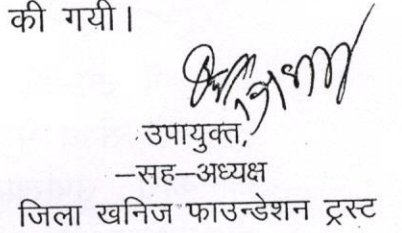 की गयी।
उपायुक्त,
–सह–अध्यक्ष
जिला खनिज फाउन्डेशन ट्रस्ट